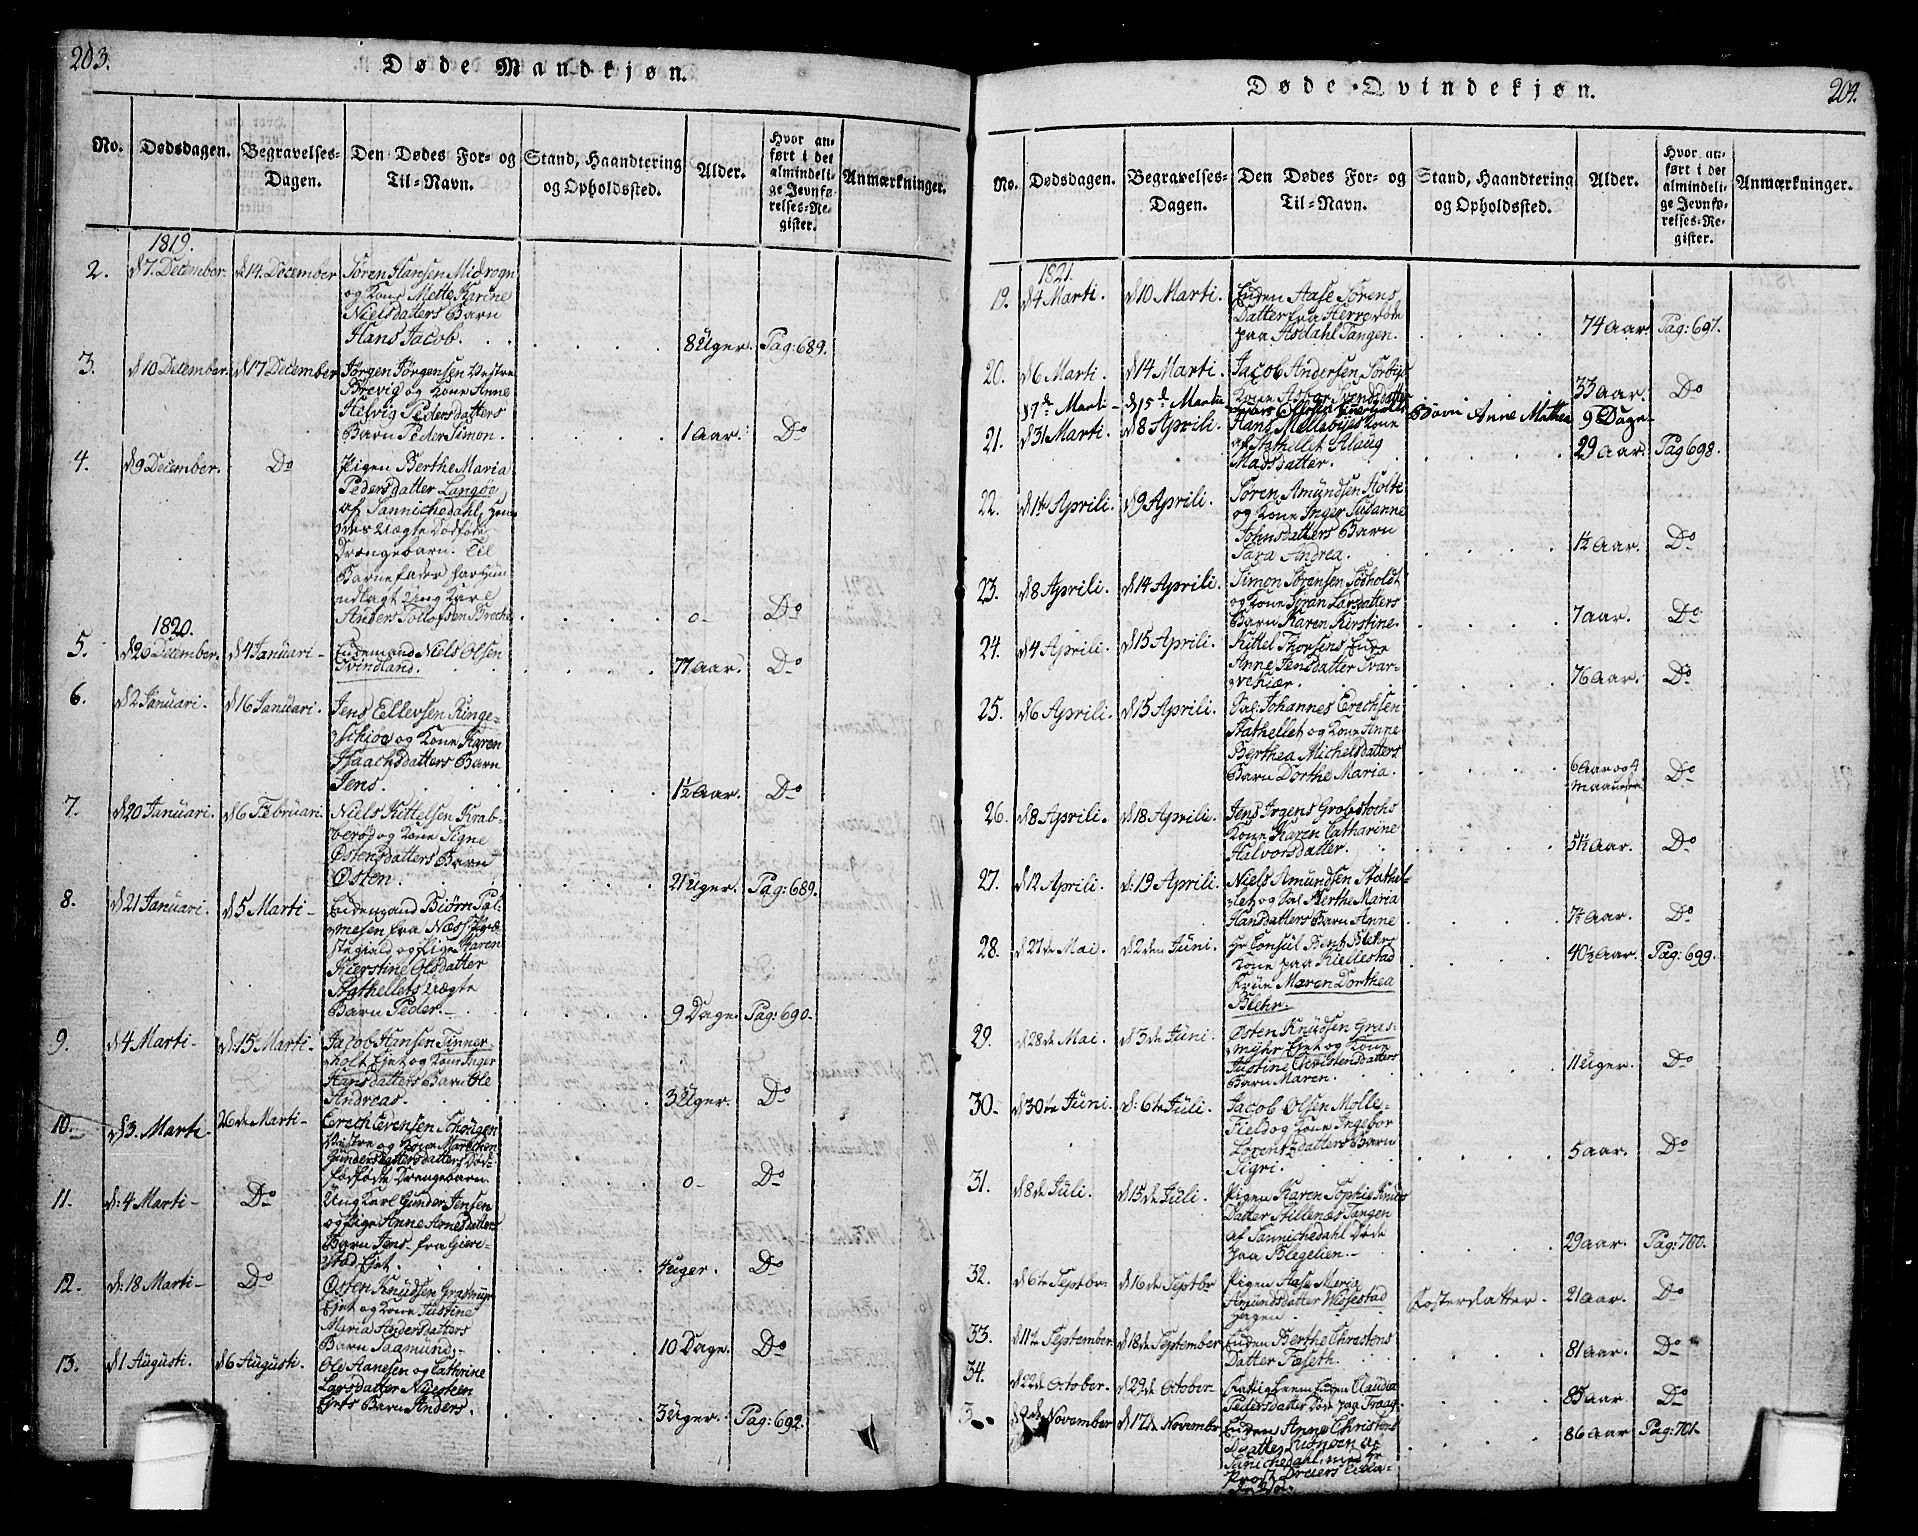 203.
Døde Mandkjøn.
No.
Dødsdagen.
Begravelses-
Dagen.
Den Dødes For- og
Til-Navn.
Stand, Haandtering
og Opholdssted.
Alder.
Hvor an-
ført i det
almindeli-
ge Jevnfø-
relses-Re-
gister.
Anmærkninger.
1819.
2. d 7. December. d 14. December Sören Hansen Midrogn
og Kone Mette Karine
Nielsdatters Barn
Hans Jacob. 8 Uger. Pag: 689.
3. d 10 December. d 17 December Jörgen Jörgensen Vestre
Brevig og Kone Anne
Helvig Pedersdatters
Barn Peder Simon. 1 Aar. Do
4. d 9 December. Do Pigen Berthe Maria
Pedersdatter Langöe
af Sannichedahl, hen-
des Uægte Dödfödte
Drængebarn. Til
Barnefader har hun
udlagt Ung Karl
Anders Tollofsen 0- Do
1820.
5. d 26 December. d 4 Januari- Enkemand Niels Olsen
Tvindland. 77 Aar. Do
6. d 2 Januari. d 16 Januari. Jens Ellevsen Ringe-
schioe og Kone Karen
Isaachsdatters Barn
Jens. 1½ Aar. Do
7. d 20 Januari. d 6 Februari. Niels Kittelsen Krab-
beröd og Kone Signe
Östensdatters Barn
Östen. 21 Uger. Pag: 689.
8. d 21 Januari. d 5 Marti- Enkemand Biörn Pal-
mesen fra Næss
og Pige Karen
Kierstine Olsdatter
Stathellets Uægte
Barn Peder. 9 Dage. Pag: 690.
9. d 4 Marti- d: 15 Marti. Jacob Hansen Tinner-
holt Eiet og Kone Inger
Hansdatters Barn Ole
Andreas. 3 Uger. Do
10. d 3. Marti- 26 de Marti- Erech Evensen Schougen
Vestre og Kone Marichen
Gundersdatters Död-
födte Drengebarn. 0- Do
11. d: 4 Marti- Do Ung Karl Gunder Jensen
og Pige Anne Arnesdatters
Barn Jens- fra Giere-
stad Eiet. 4 Uger. Do
12. d: 18 Marti- Do Östen Knudsen Grasmyr
Eiet og Kone Justine
Maria Andersdatters
Barn Saamund. 10 Dage. Do
13. d 1 Augusti. d 6 Augusti. Ole Aanesen og Cathrine
Larsdatter Nüesteen
Eiets Barn Anders. 3 Uger. Pag: 692.
204.
Døde Qvindekjøn.
No.
Dødsdagen.
Begravelses-
Dagen.
Den Dødes For- og
Til-Navn.
Stand, Haandtering
og Opholdssted.
Alder.
Hvor an-
ført i det
almindeli-
ge Jevnfø-
relses-Re-
gister.
Anmærkninger.
1821.
19. d 4 Marti. d 10 Marti. Enken Aase Sörens
Datter fra Herre döde
paa Asdahl Tangen. 74 Aar Pag: 697.
20. d 6 Marti. d 14 Marti. Jacob Andersen Sörbÿe
Kone Svendsdatter 33 Aar. Do
17de Marti- d 15de Martii Barn Anne Mathea 9 Dage
21. d 31 Marti. d 8 Aprili. Hans Mellebÿes Kone
af Stathellet Aslaug
Madsdatter. 29 Aar. Pag 698.
22. d 1te Aprili. d 9 Aprili. Sören Amündsen Holte
og Kone Inger Susanne
Johnsdatters Barn
Sara Andrea. 1½ Aar. Do
23. d 8 Aprili. d 14 Aprili. Simon Sörensen Södholdt
og Kone Sören Larsdatters
Barn Karen Kirstine. 7 Aar. Do
24. d 4 Aprili. d 15 Aprili. Kittel Thorsens Enke
Anne Jensdatter Svar-
vekiær. 76 Aar. Do
25. d 6 Aprili. d 15 Aprili. Sal: Johannes Erechsen
Stathellet og Kone Anne
Berthea Michelsdatters
Barn Dorthe Maria. 6 Aar og 4
Maaneder. Do
26. d 8 Aprili. d 18 Aprili. Jens Irgens Grobstochs
Kone Karen Catharine
Halvorsdatter. 51½ Aar. Do
27. d 12 Aprili. d: 19 Aprili. Niels Amündsen Stathel-
let og Sal Berthe Maria
Hansdatters Barn Anne 7½ Aar. Do
28. d 27de Mai. d 2den Juni. Hr Consül Bent Blehrs
Kone paa Kiellestad
Früe Maren Dorthea
Blehr. 40½ Aar. Pag: 699.
29. d 28de Mai. d 3de Juni. Östen Knüdsen Gras-
myhr Eiet og Kone
Justine Christensdatters
Barn Maren. 11 Uger. Do
30- d 30te Juni. d: 6te Juli. Jacob Olsen Molle-
Field og Kone Ingebor
Lorensdatters Barn
Sigri. 5 Aar. Do
31. d 8de Juli. d 15de Juli. Pigen Karen Sophie Knüds
Datter Stillenæs Tangen
af Sannichedahl Döde
paa Blegelien.- 29 Aar. Pag: 700.
32. d 6te Septbr. d 16de Septbr Pigen Aase Maria
Amündsdatter Wissestad
Hagen. Fosterdatter. 21 Aar. Do
33. d 11te September. d 18de September Enken Berthe Christens
Datter Foseth. 81 Aar. Do
34. d 22de October. d 29de October- Fattiglem Enken Claudia
Pedersdatter Döde paa Traag 85 Aar. Do
3 d 9de November d 17de November Enken Anne Christens
Datter af
Sanichedahl, med Hr
Provst Dreiers 86 Aar Pag: 701.